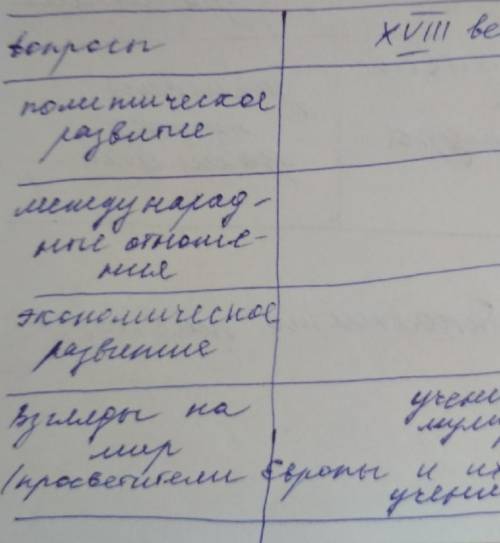 вопросы XVIII ве
политическое
развитие
международ-
ные отноше-
ния
экономическое
развитие
Взгляды на учени
мир мули
(просветители Европы и их
учени